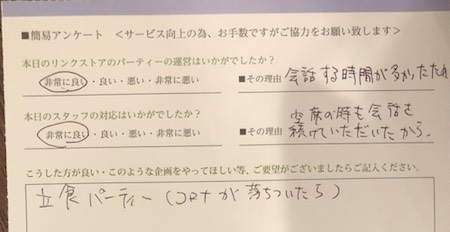 ■簡易アンケート ＜サービス向上の為、お手数ですがご協力をお願い致します＞
本日のリンクストアのパーティーの運営はいかがでしたか？
非常に良い・良い・悪い・非常に悪い ■その理由 会話する時間が多かったため
本日のスタッフの対応はいかがでしたか？
空席の時も会話を
非常に良い・良い・悪い・非常に悪い ■その理由 続けていただいたから。
こうした方が良い・このような企画をやってほしい等、ご要望がございましたらご記入ください。
立食パーティー(コロナが落ちついたら)